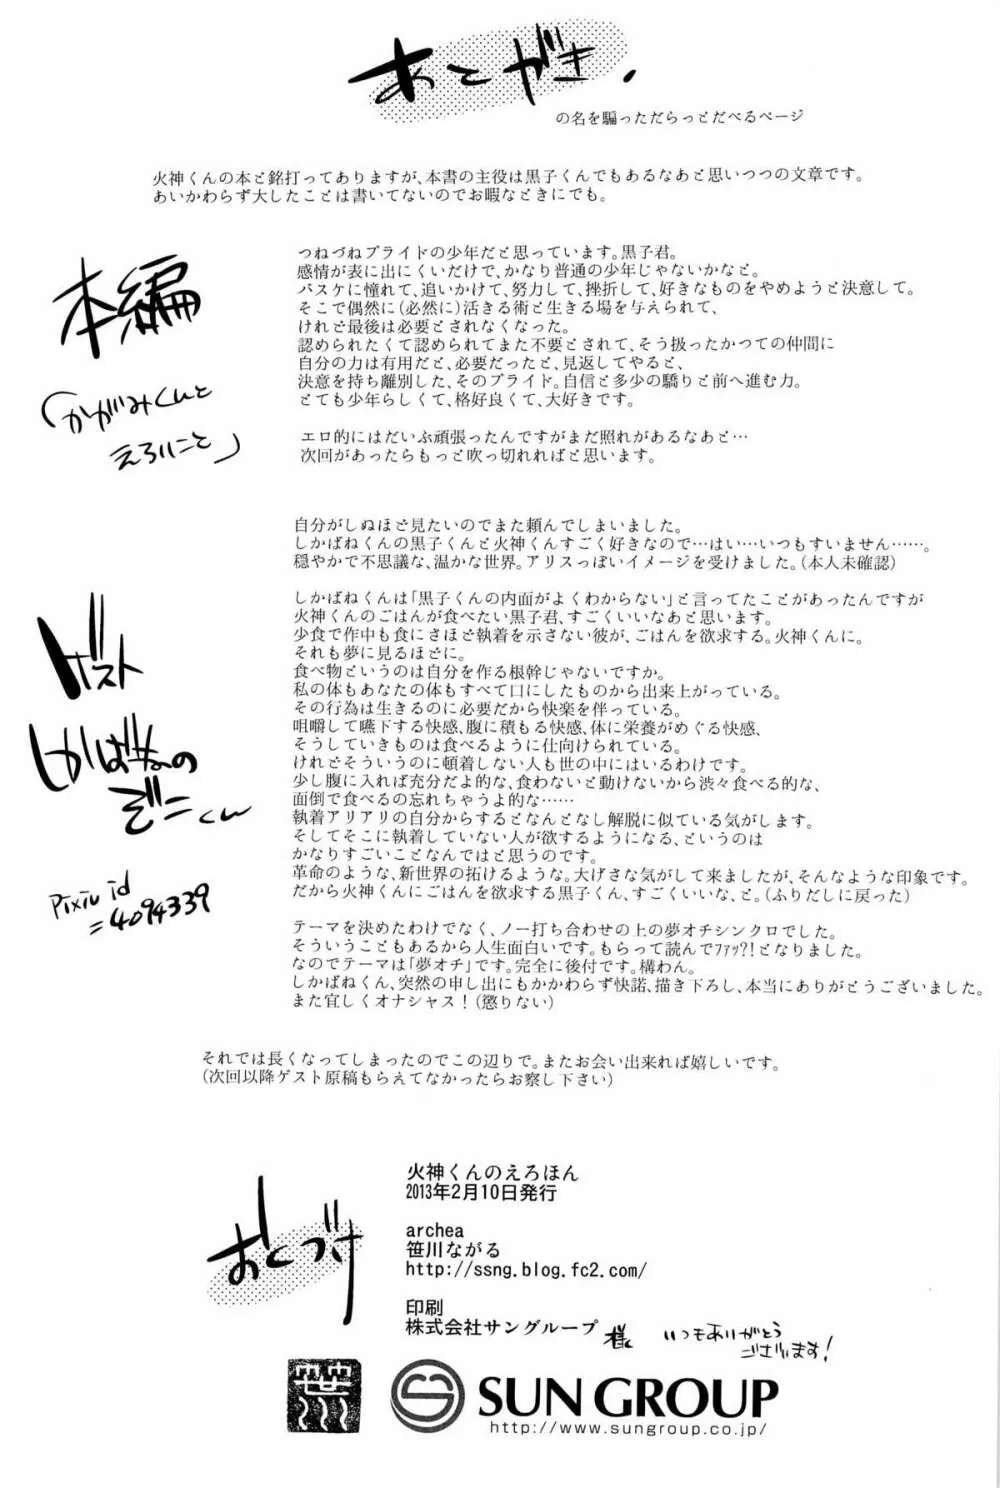 あとがき.
の名を騙っただらっとだべるページ
火神くんの本と銘打ってありますが、本書の主役は黒子くんでもあるなあと思いつつの文章です。
あいかわらず大したことは書いてないのでお暇なときにでも。
本編
「かがみくんと
えろいこと」
つねづねプライドの少年だと思っています。黒子君。
感情が表に出にくいだけで、かなり普通の少年じゃないかなと。
バスケに憧れて、追いかけて、努力して、挫折して、好きなものをやめようと決意して。
そこで偶然に(必然に)活きる術と生きる場を与えられて、
けれど最後は必要とされなくなった。
認められたくて認められてまた不要とされて、そう扱ったかつての仲間に
自分の力は有用だと、必要だったと、見返してやると、
決意を持ち離別した、そのプライド。自信と多少の驕りと前へ進む力。
とても少年らしくて、格好良くて、大好きです。
エロ的にはだいぶ頑張ったんですがまだ照れがあるなあと…
次回があったらもっと吹っ切れればと思います。
ゲスト
しかばねの
ぞーくん
Pixiv id
=4094339
自分がしぬほど見たいのでまた頼んでしまいました。
しかばねくんの黒子くんと火神くんすごく好きなので…はい…いつもすいません……。
穏やかで不思議な、温かな世界。アリスっぽいイメージを受けました。(本人未確認)
しかばねくんは「黒子くんの内面がよくわからない」と言ってたことがあったんですが
火神くんのごはんが食べたい黒子君、すごくいいなあと思います。
少食で作中も食にさほど執着を示さない彼が、ごはんを欲求する。火神くんに。
それも夢に見るほどに。
食べ物というのは自分を作る根幹じゃないですか。
私の体もあなたの体もすべて口にしたものから出来上がっている。
その行為は生きるのに必要だから快楽を伴っている。
咀嚼して嚥下する快感、腹に積もる快感、体に栄養がめぐる快感、
そうしていきものは食べるように仕向けられている。
けれどそういうのに頓着しない人も世の中にはいるわけです。
少し腹に入れば充分だよ的な、食わないと動けないから渋々食べる的な、
面倒で食べるの忘れちゃうよ的な……
執着アリアリの自分からするとなんとなし解脱に似ている気がします。
そしてそこに執着していない人が欲するようになる、というのは
かなりすごいことなんではと思うのです。
革命のような、新世界の拓けるような。大げさな気がして来ましたが、そんなような印象です。
だから火神くんにごはんを欲求する黒子くん、すごくいいな、と。(ふりだしに戻った)
テーマを決めたわけでなく、ノー打ち合わせの上の夢オチシンクロでした。
そういうこともあるから人生面白いです。もらって読んでﾌｧｯ?!となりました。
なのでテーマは「夢オチ」です。完全に後付です。構わん。
しかばねくん、突然の申し出にもかかわらず快諾、描き下ろし、本当にありがとうございました。
また宜しくオナシャス!(懲りない)
それでは長くなってしまったのでこの辺りで。またお会い出来れば嬉しいです。
(次回以降ゲスト原稿もらえてなかったらお察し下さい)
おくづけ
火神くんのえろほん
2013年2月10日発行
archea
笹川ながる
http://ssng.blog.fc2.com/
印刷
株式会社サングループ 様 いつもありがとう
ございます!
SUN GROUP
http://www.sungroup.co.jp/